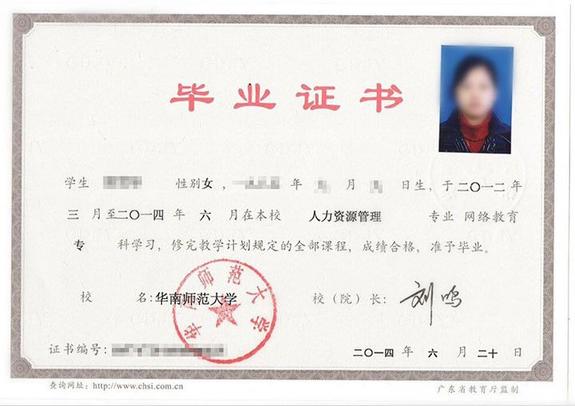 毕业证书
学生 性别女， 年 月 日生，于二〇一二年
三月至二〇一四年 六月在本校 人力资源管理 专业 网络教育
专 科学习，修完教学计划规定的全部课程，成绩合格，准予毕业。
校 名：华南师范大学 校（院）长：刘鸣
华南师范大学
证书编号： 二〇一四年 六月二十日
查询网址：http://www.chsi.com.cn 广东省教育厅监制